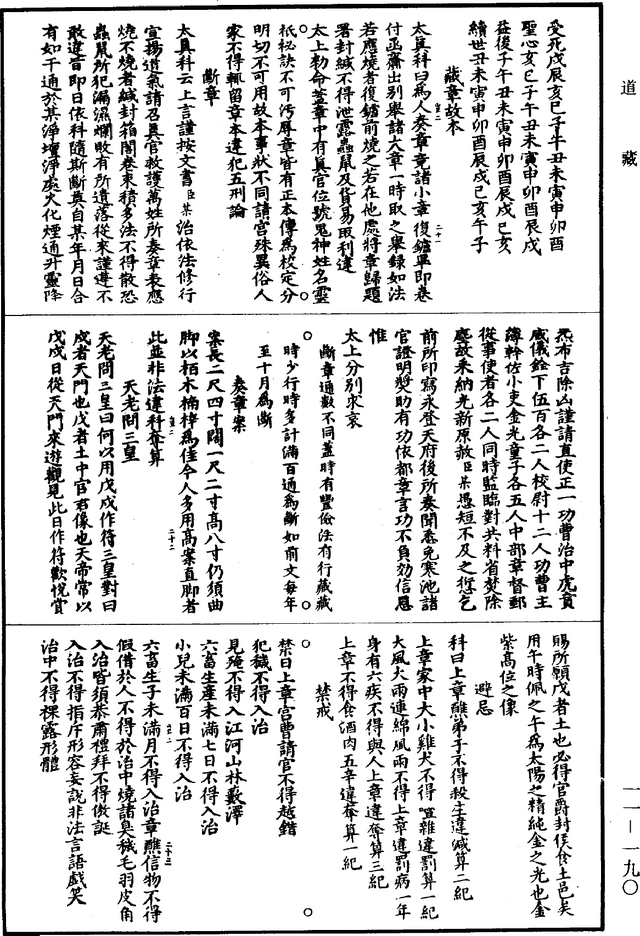 道藏
受死戊辰亥巳子午丑未寅申卯酉
聖心亥巳子午丑未寅申卯酉辰戌
益後子午丑未寅申卯酉辰戌巳亥
續世丑未寅申卯酉辰戌巳亥午子
藏章故本
太真科曰爲人奏章竟諸小章復鑪畢即卷
付函齋出别舉諸大章一時取之舉録如法
若應燒者復鑪前燒之若在他處將章歸題
署封緘不得泄露蟲鼠及貨易取利違
太上勑命蓋章中有眞官位號鬼神姓名靈
祇祕訣不可汚辱章皆有正本傳爲校定分
明切不可用故本事狀不同請官殊異俗人
家不得輒留章本違犯五刑論
斷章
太真科云上言謹按文書臣某治依法修行
宣揚道氣請召眞官救護萬姓所奏章表應
燒不燒者緘封箱閣卷束積多法不得散恐
蟲鼠所犯漏濕爛敗有所遺落從來謹遵不
敢違旨即日依科隨斯斷奠自某年月日合
有如干通於其淨壇淨處火化煙通升靈降
炁布吉除凶謹請直使正一功曹治中虎賁
威儀銓下伍百各二人校尉十二人功曹主
簿幹佐小吏金光童子各五人中部章督郵
從事使者各二人同時監臨對共料省焚除
塵故釆納光新原赦臣某愚短不及之愆乞
前所印寫永登天府後所奏聞悉免寒池諸
官證明奬助有功依都章言功不負効信恩
惟
太上分别求哀
斷章通數不同蓋時有豐儉法有行藏藏
時少行時多計滿百通爲斷如前文每年
至十月爲斷
奏章案
案長二尺四寸闊一尺二寸高八寸仍須曲
脚以栢木楠梓爲佳今人多用高案直脚者
此並非法違科奪算
天老問三皇
天老問三皇曰何以用戊戌作符三皇對曰
戌者天門也戊者土中官君像也天帝常以
戊戌日從天門來遊觀見此日作符歡悦賞
賜所願戊者土也必得官爵封侯食土邑矣
用午時佩之午爲太陽之精純金之光也金
紫高位之像
避忌
科曰上章醮弟子不得殺生違減算二紀
上章家中大小雞犬不得喧雜違罰算一紀
大風大雨連綿風雨不得上章違罰病一年
身有六疾不得與人上章違奪算三紀
上章不得食酒肉五辛違奪算一紀
禁戒
禁曰上章宫曹請官不得越錯
犯穢不得入治
見殗不得入江河山林藪澤
六畜生産未滿七日不得入治
小兒未滿百日不得入治
六畜生子未滿月不得入治章醮信物不得
假借於人不得於治中燒諸臭穢毛羽皮角
入治皆須恭肅禮拜不得傲誕
入治不得指斥形容妄説非法言語戲笑
治中不得裸露形體
一一—一九〇